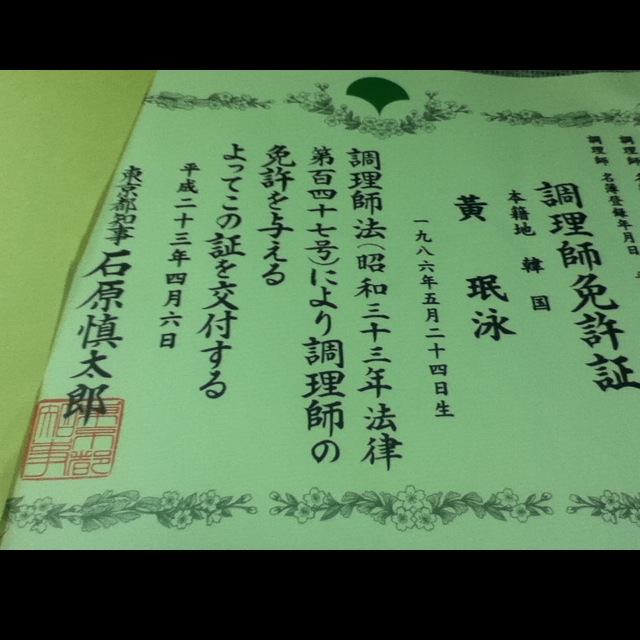 調理師名簿登録年月日
調理師免許証
本籍地 韓国
黄 珉泳
一九八六年五月二十四日生
調理師法(昭和三十三年法律
第百四十七号)により調理師の
免許を与える
よってこの証を交付する
平成二十三年四月六日
東京都知事 石原慎太郎